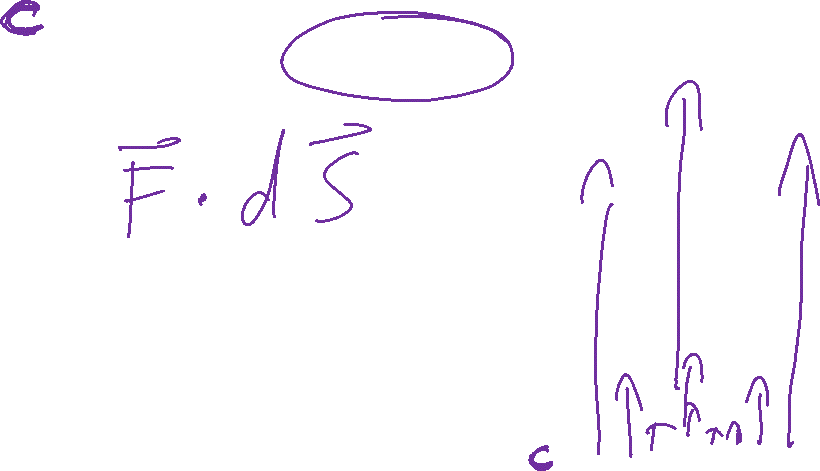 c
F⃗ · dS⃗
c